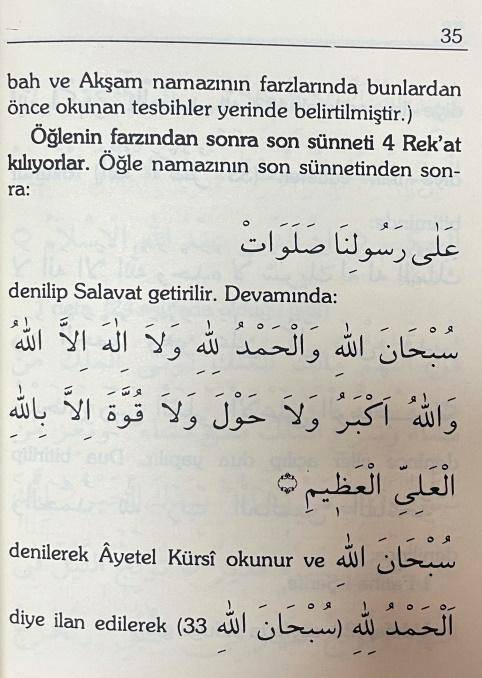 35
bah ve Akşam namazının farzlarında bunlardan
önce okunan tesbihler yerinde belirtilmiştir.)
Öğlenin farzından sonra son sünneti 4 Rek'at
kılıyorlar. Öğle namazının son sünnetinden son-
ra:
عَلٰى رَسُولِنَا صَلَوَاتْ
denilip Salavat getirilir. Devamında:
سُبْحَانَ اللّٰهِ وَالْحَمْدُ لِلّٰهِ وَلَا اِلٰهَ اِلَّا اللّٰهُ
وَاللّٰهُ اَكْبَرُ وَلَا حَوْلَ وَلَا قُوَّةَ اِلَّا بِاللّٰهِ
الْعَلِيِّ الْعَظِيمِ
denilerek Âyetel Kürsî okunur ve سُبْحَانَ اللّٰهِ
diye ilan edilerek (33 سُبْحَانَ اللّٰهِ) اَلْحَمْدُ لِلّٰهِ